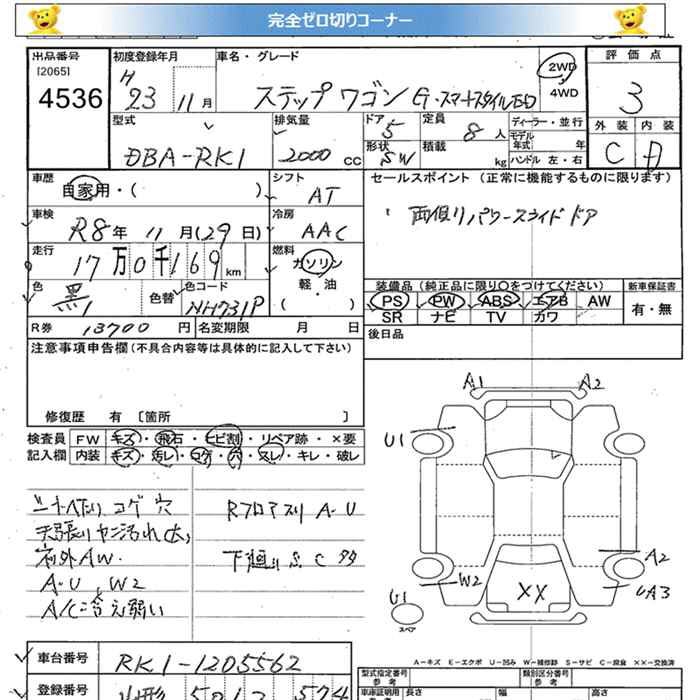 完全ゼロ切りコーナー
出品番号
[2065]
4536
初度登録年月
H
23 11月
車名・グレード
ステップワゴン G・スマートスタイルED
2WD
4WD
評価点
3
外装 内装
C D
型式
DBA-RK1
排気量
2000 cc
ドア
5
形状
SW
定員
8 人
積載
kg
ディーラー・並行
モデル年式 年
ハンドル 左・右
車歴
自家用・( )
シフト
AT
車検
R8年 11月(29日)
冷房
AAC
走行
17万0千169 km
燃料
ガソリン
軽・油
( )
色
黒
色替
色コード
NH731P
R券 13700 円
名変期限 月 日
セールスポイント (正常に機能するものに限ります)
両側リパワースライドドア
装備品 (純正品に限り○をつけてください)
PS PW ABS エアB AW
SR ナビ TV カワ
新車保証書
有・無
後日品
注意事項申告欄 (不具合内容等は具体的に記入して下さい)
修復歴 有 〔箇所 〕
検査員 FW キズ・飛石・ヒビ割・リペア跡・×要
記入欄 内装 キズ・汚レ・コゲ・穴・スレ・キレ・破レ
シートへたり コゲ 穴
天張りヤニ汚れ大,
社外AW.
A-U W2
A/C冷え弱い
Rフロアスリ A-U
下廻り S C タタ
A1 A2
U1
W2
U1
スペア
XX
A2
UA3
A-キズ E-エクボ U-凹み W-補修跡 S-サビ C-腐食 XX-交換済
車台番号 RK1-1205562
登録番号 山形 501 574
型式指定番号
参考
類別区分番号
参考
車庫証明用
長さ 幅 高さ